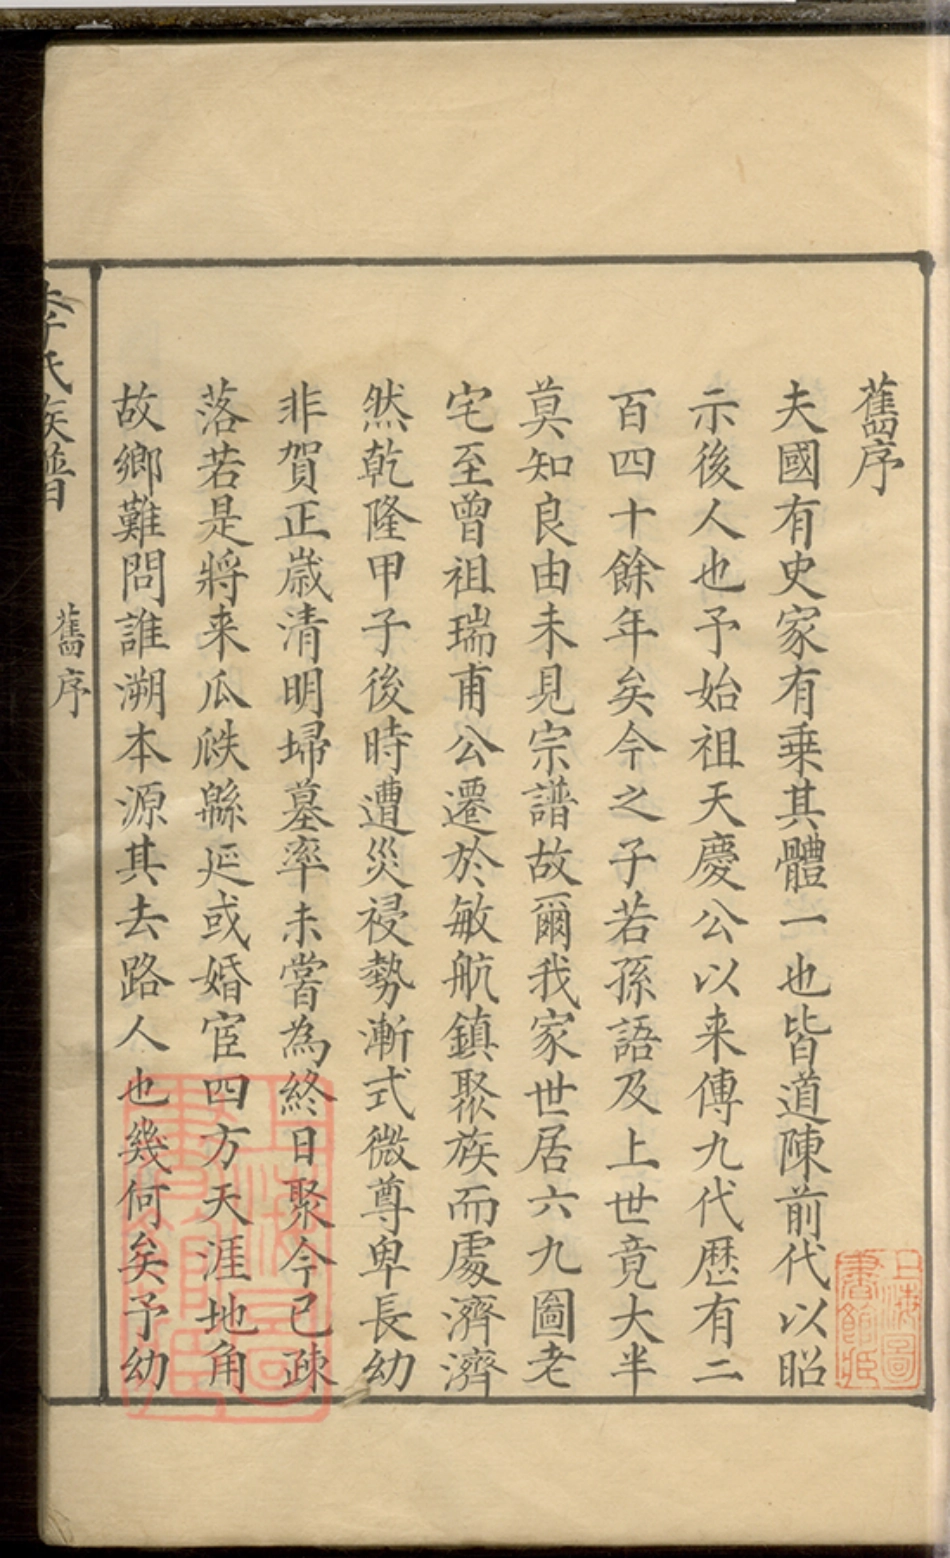 舊序
夫國有史家有乗其體一也皆道陳前代以昭
示後人也予始祖天慶公以来傳九代歷有二
百四十餘年矣今之子若孫語及上世竟大半
莫知良由未見宗譜故爾我家世居六九圖老
宅至曾祖瑞甫公遷於敏航鎮聚族而處濟濟
然乾隆甲子後時遭災祲勢漸式微尊卑長幼
非賀正歲清明埽墓率未嘗為終日聚今已疎
落若是將来瓜瓞緜延或婚宦四方天涯地角
故鄉難問誰溯本源其去路人也幾何矣予幼
李氏族譜
舊序
上海圖書館藏
上海圖書館藏